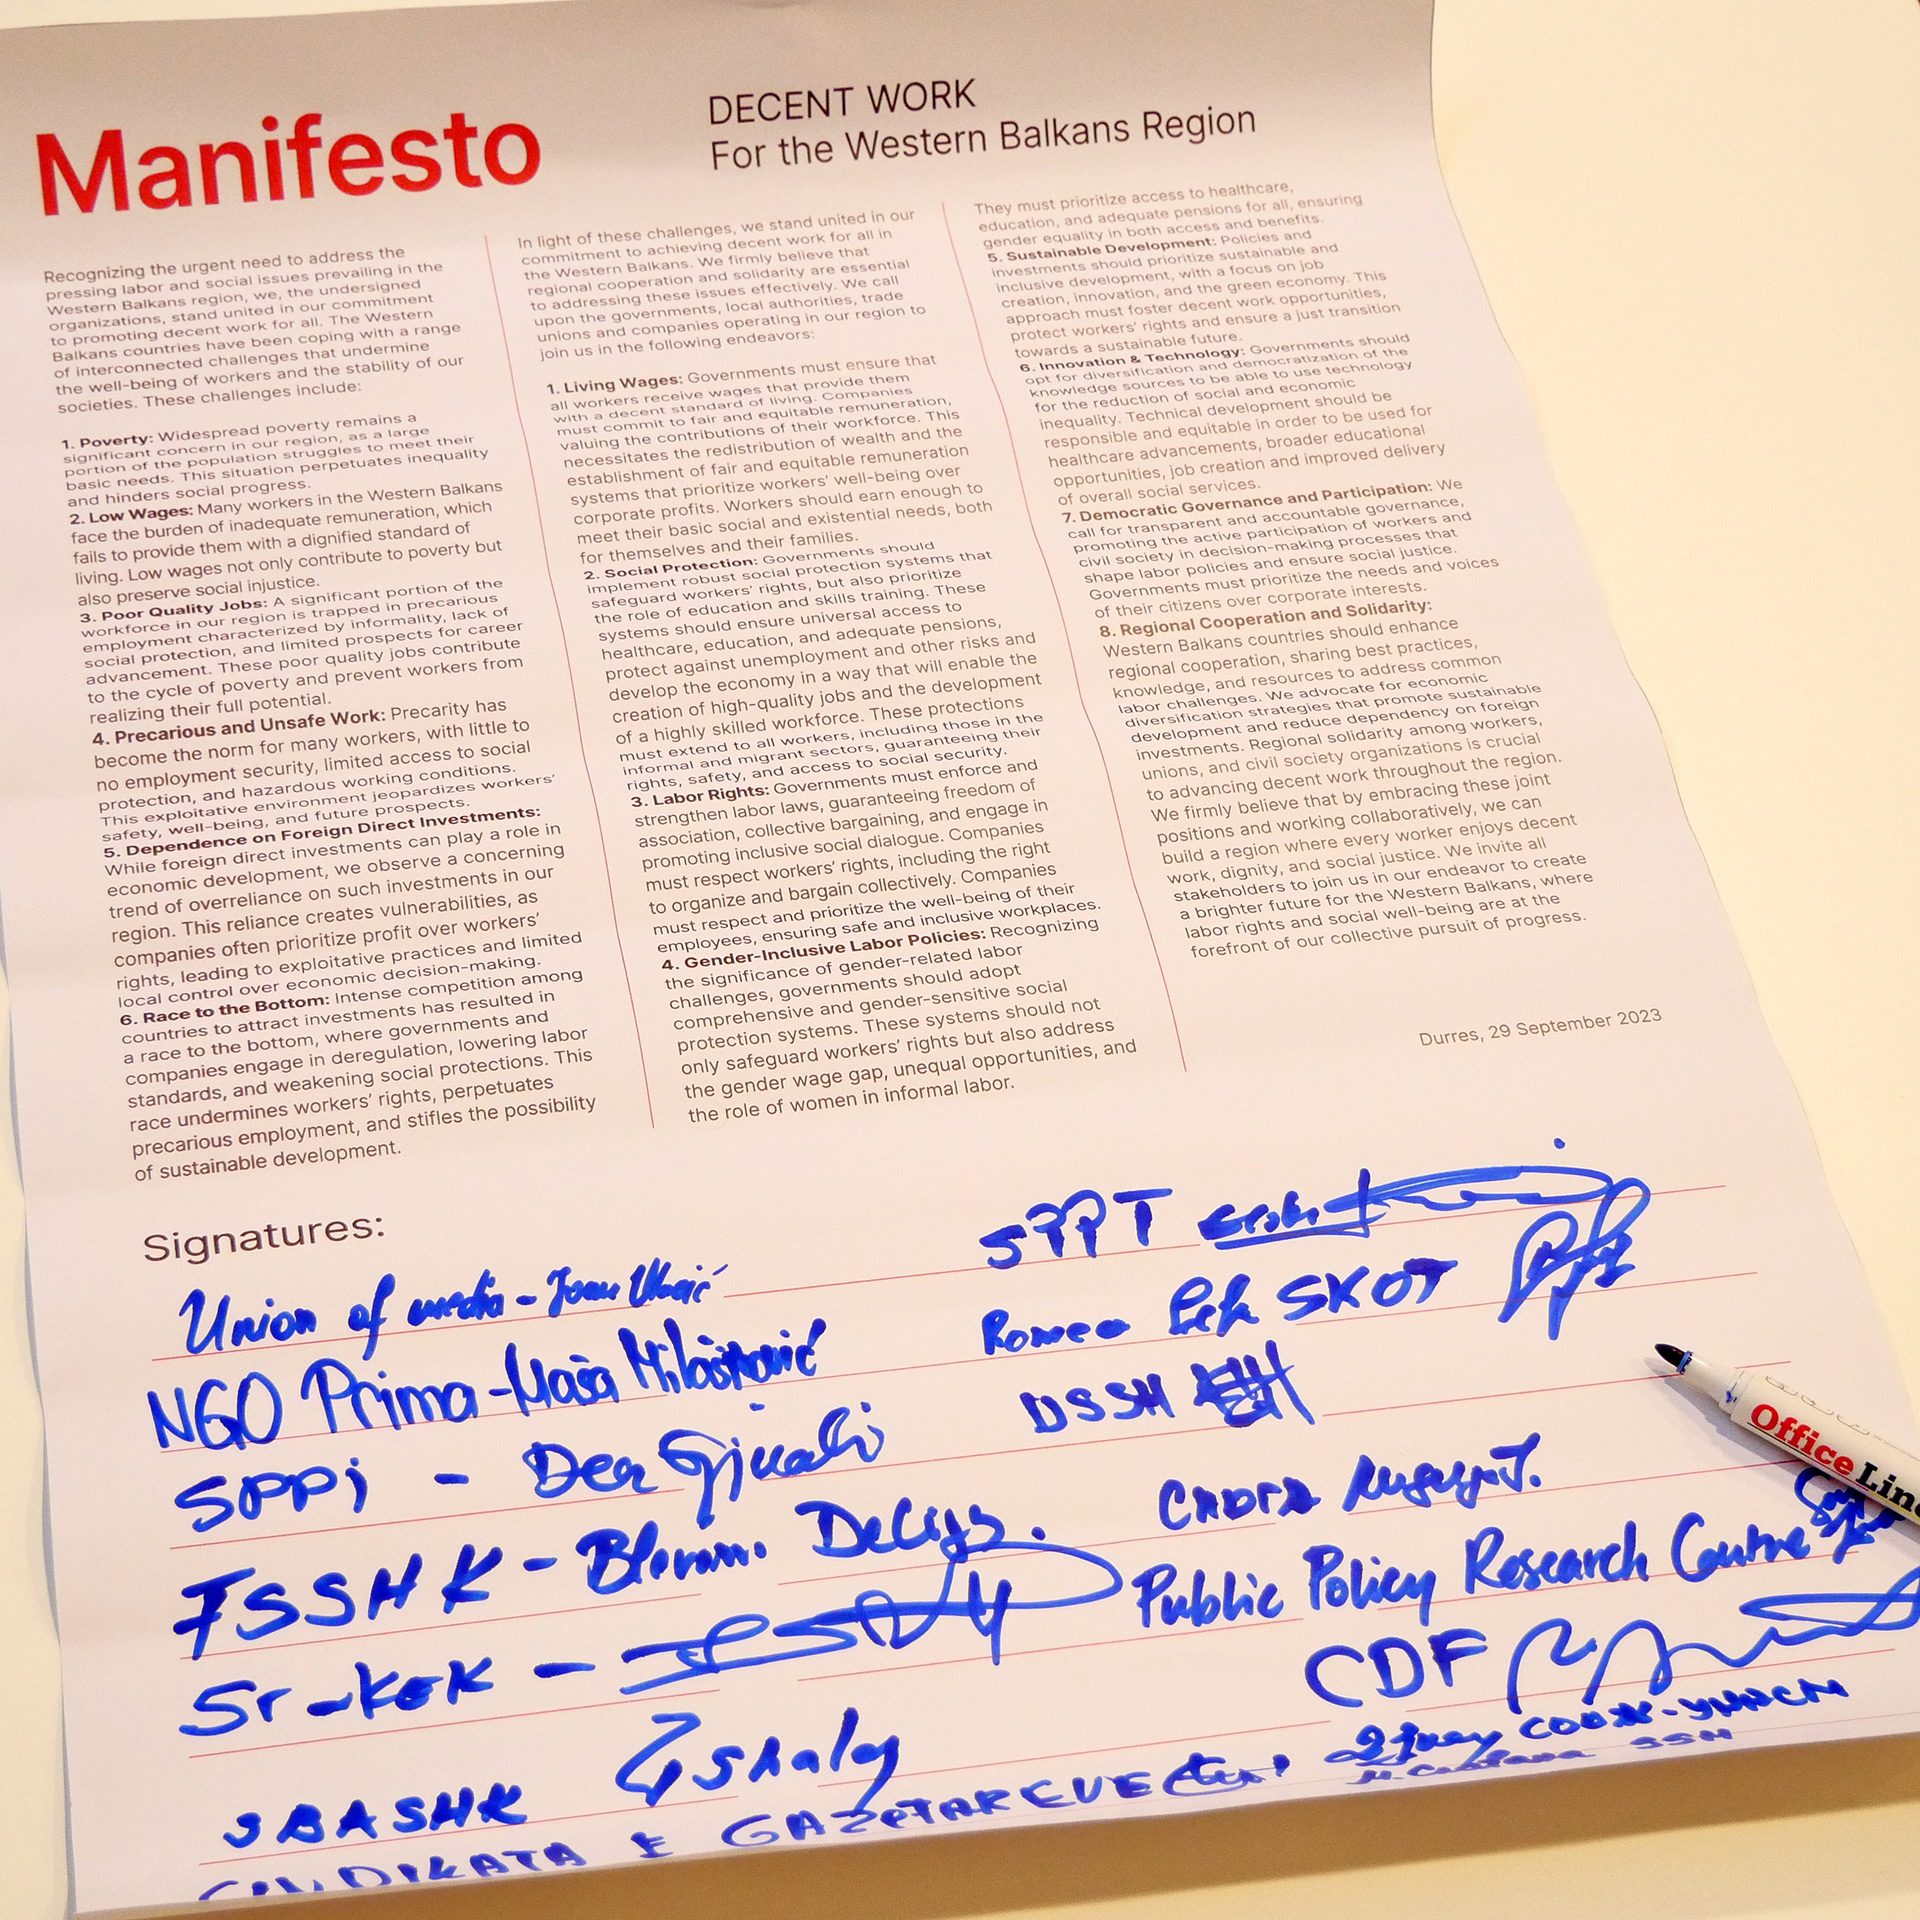 Manifesto
DECENT WORK
For the Western Balkans Region
Recognizing the urgent need to address the
pressing labor and social issues prevailing in the
Western Balkans region, we, the undersigned
organizations, stand united in our commitment
to promoting decent work for all. The Western
Balkans countries have been coping with a range
of interconnected challenges that undermine
the well-being of workers and the stability of our
societies. These challenges include:
1. Poverty: Widespread poverty remains a
significant concern in our region, as a large
portion of the population struggles to meet their
basic needs. This situation perpetuates inequality
and hinders social progress.
2. Low Wages: Many workers in the Western Balkans
face the burden of inadequate remuneration, which
fails to provide them with a dignified standard of
living. Low wages not only contribute to poverty but
also preserve social injustice.
3. Poor Quality Jobs: A significant portion of the
workforce in our region is trapped in precarious
employment characterized by informality, lack of
social protection, and limited prospects for career
advancement. These poor quality jobs contribute
to the cycle of poverty and prevent workers from
realizing their full potential.
4. Precarious and Unsafe Work: Precarity has
become the norm for many workers, with little to
no employment security, limited access to social
protection, and hazardous working conditions.
This exploitative environment jeopardizes workers'
safety, well-being, and future prospects.
5. Dependence on Foreign Direct Investments:
While foreign direct investments can play a role in
economic development, we observe a concerning
trend of overreliance on such investments in our
region. This reliance creates vulnerabilities, as
companies often prioritize profit over workers'
rights, leading to exploitative practices and limited
local control over economic decision-making.
6. Race to the Bottom: Intense competition among
countries to attract investments has resulted in
a race to the bottom, where governments and
companies engage in deregulation, lowering labor
standards, and weakening social protections. This
race undermines workers' rights, perpetuates
precarious employment, and stifles the possibility
of sustainable development.
In light of these challenges, we stand united in our
commitment to achieving decent work for all in
the Western Balkans. We firmly believe that
regional cooperation and solidarity are essential
to addressing these issues effectively. We call
upon the governments, local authorities, trade
unions and companies operating in our region to
join us in the following endeavors:
1. Living Wages: Governments must ensure that
all workers receive wages that provide them
with a decent standard of living. Companies
must commit to fair and equitable remuneration,
valuing the contributions of their workforce. This
necessitates the redistribution of wealth and the
establishment of fair and equitable remuneration
systems that prioritize workers' well-being over
corporate profits. Workers should earn enough to
meet their basic social and existential needs, both
for themselves and their families.
2. Social Protection: Governments should
implement robust social protection systems that
safeguard workers' rights, but also prioritize
the role of education and skills training. These
systems should ensure universal access to
healthcare, education, and adequate pensions,
protect against unemployment and other risks and
develop the economy in a way that will enable the
creation of high-quality jobs and the development
of a highly skilled workforce. These protections
must extend to all workers, including those in the
informal and migrant sectors, guaranteeing their
rights, safety, and access to social security.
3. Labor Rights: Governments must enforce and
strengthen labor laws, guaranteeing freedom of
association, collective bargaining, and engage in
promoting inclusive social dialogue. Companies
must respect workers' rights, including the right
to organize and bargain collectively. Companies
must respect and prioritize the well-being of their
employees, ensuring safe and inclusive workplaces.
4. Gender-Inclusive Labor Policies: Recognizing
the significance of gender-related labor
challenges, governments should adopt
comprehensive and gender-sensitive social
protection systems. These systems should not
only safeguard workers' rights but also address
the gender wage gap, unequal opportunities, and
the role of women in informal labor.
They must prioritize access to healthcare,
education, and adequate pensions for all, ensuring
gender equality in both access and benefits.
5. Sustainable Development: Policies and
investments should prioritize sustainable and
inclusive development, with a focus on job
creation, innovation, and the green economy. This
approach must foster decent work opportunities,
protect workers' rights and ensure a just transition
towards a sustainable future.
6. Innovation & Technology: Governments should
opt for diversification and democratization of the
knowledge sources to be able to use technology
for the reduction of social and economic
inequality. Technical development should be
responsible and equitable in order to be used for
healthcare advancements, broader educational
opportunities, job creation and improved delivery
of overall social services.
7. Democratic Governance and Participation: We
call for transparent and accountable governance,
promoting the active participation of workers and
civil society in decision-making processes that
shape labor policies and ensure social justice.
Governments must prioritize the needs and voices
of their citizens over corporate interests.
8. Regional Cooperation and Solidarity:
Western Balkans countries should enhance
regional cooperation, sharing best practices,
knowledge, and resources to address common
labor challenges. We advocate for economic
diversification strategies that promote sustainable
development and reduce dependency on foreign
investments. Regional solidarity among workers,
unions, and civil society organizations is crucial
to advancing decent work throughout the region.
We firmly believe that by embracing these joint
positions and working collaboratively, we can
build a region where every worker enjoys decent
work, dignity, and social justice. We invite all
stakeholders to join us in our endeavor to create
a brighter future for the Western Balkans, where
labor rights and social well-being are at the
forefront of our collective pursuit of progress.
Durres, 29 September 2023
Signatures:
Union of media -
NGO Prima - Maša Milošković
SPPI - Dea Gjinali
FSSHK -
ST-KEK -
SBASHK
SINDIKATA E GAZETAREVE
SPPT
Romeo SKOT
DSSH
Public Policy Research Centre
CDF
SSM
Office Line